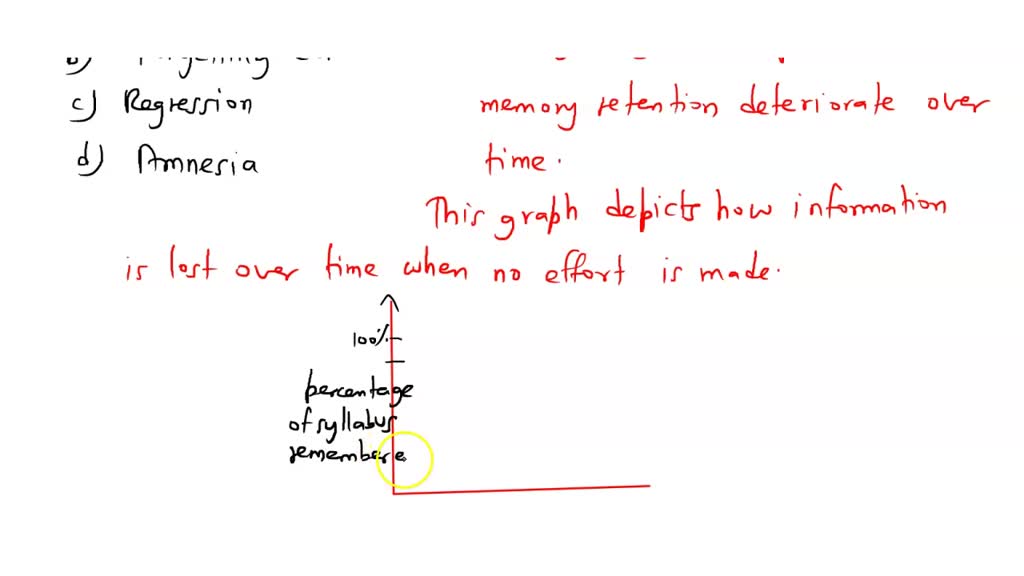 b)
c) Regression
d) Amnesia
memory retention deteriorate over
time.
This graph depicts how information
is lost over time when no effort is made.
100%
percentage
of syllabus
remembere